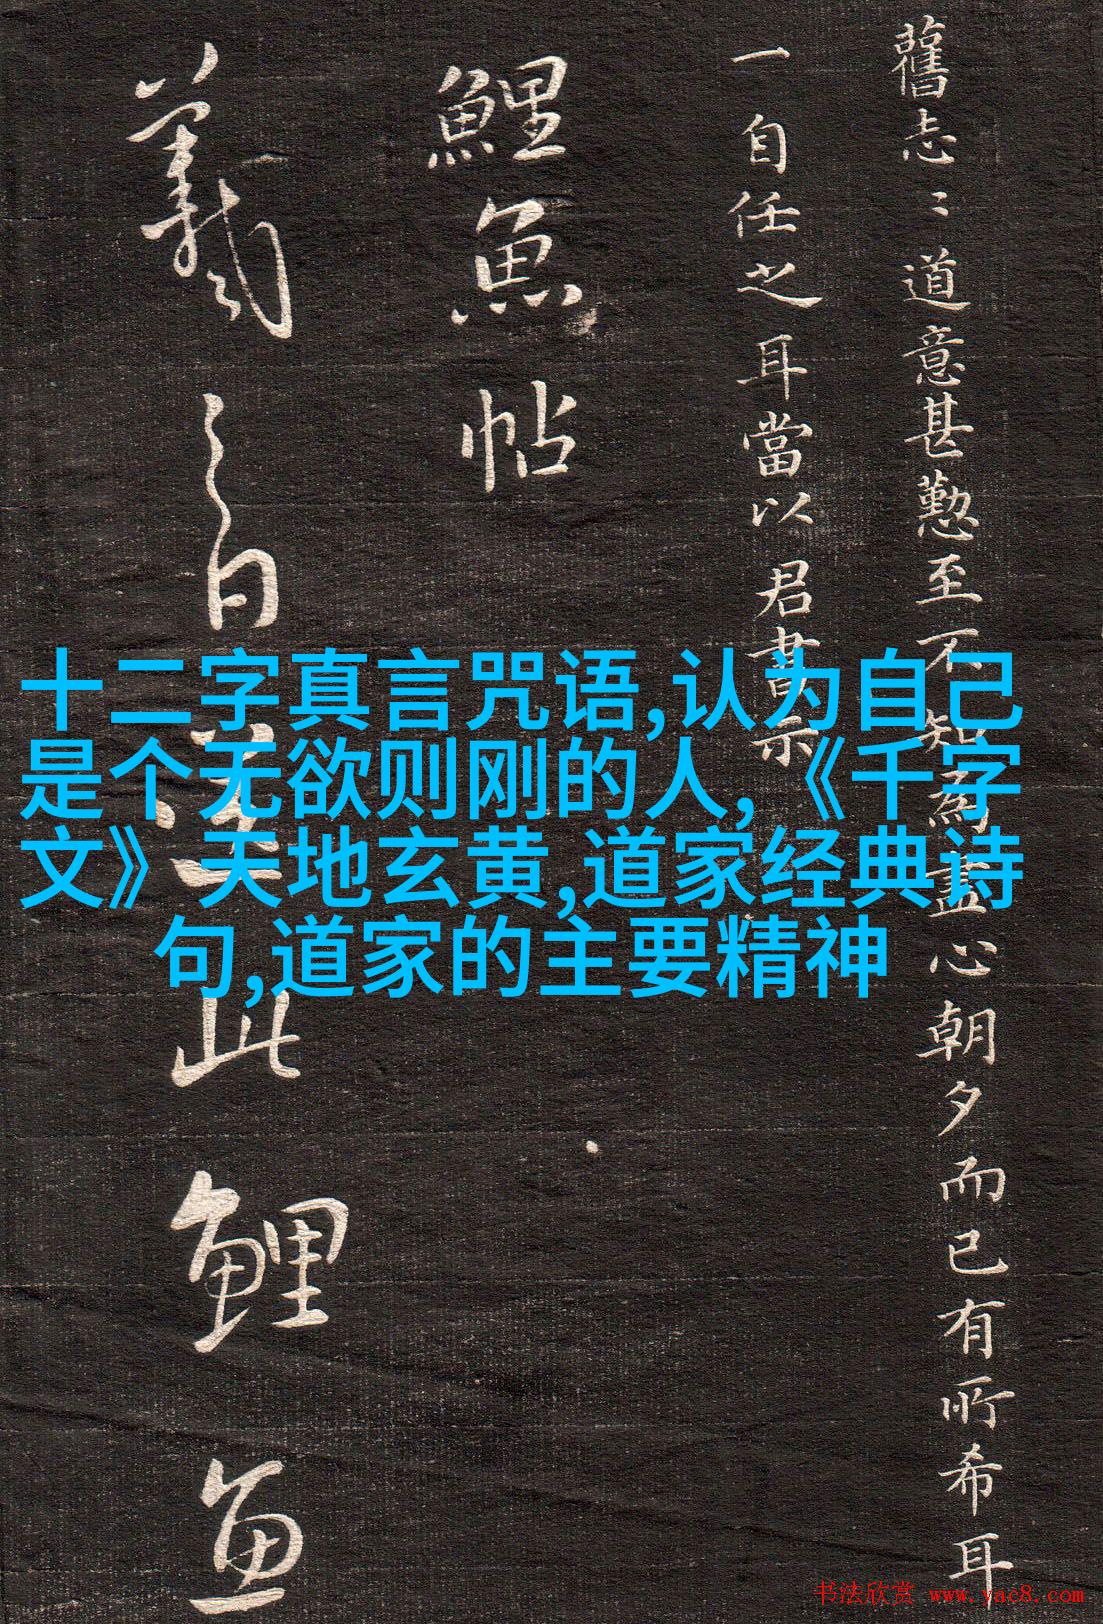 舊志〻道意甚懃至不知為盡心朝夕而已有所希耳
一自任之耳當以君書示
鯉魚帖
羲之白送此鯉魚
十二字真言咒语,认为自己
是个无欲则刚的人,《千字
文》天地玄黄,道家经典诗
句,道家的主要精神
书法欣赏 www.yac8.com